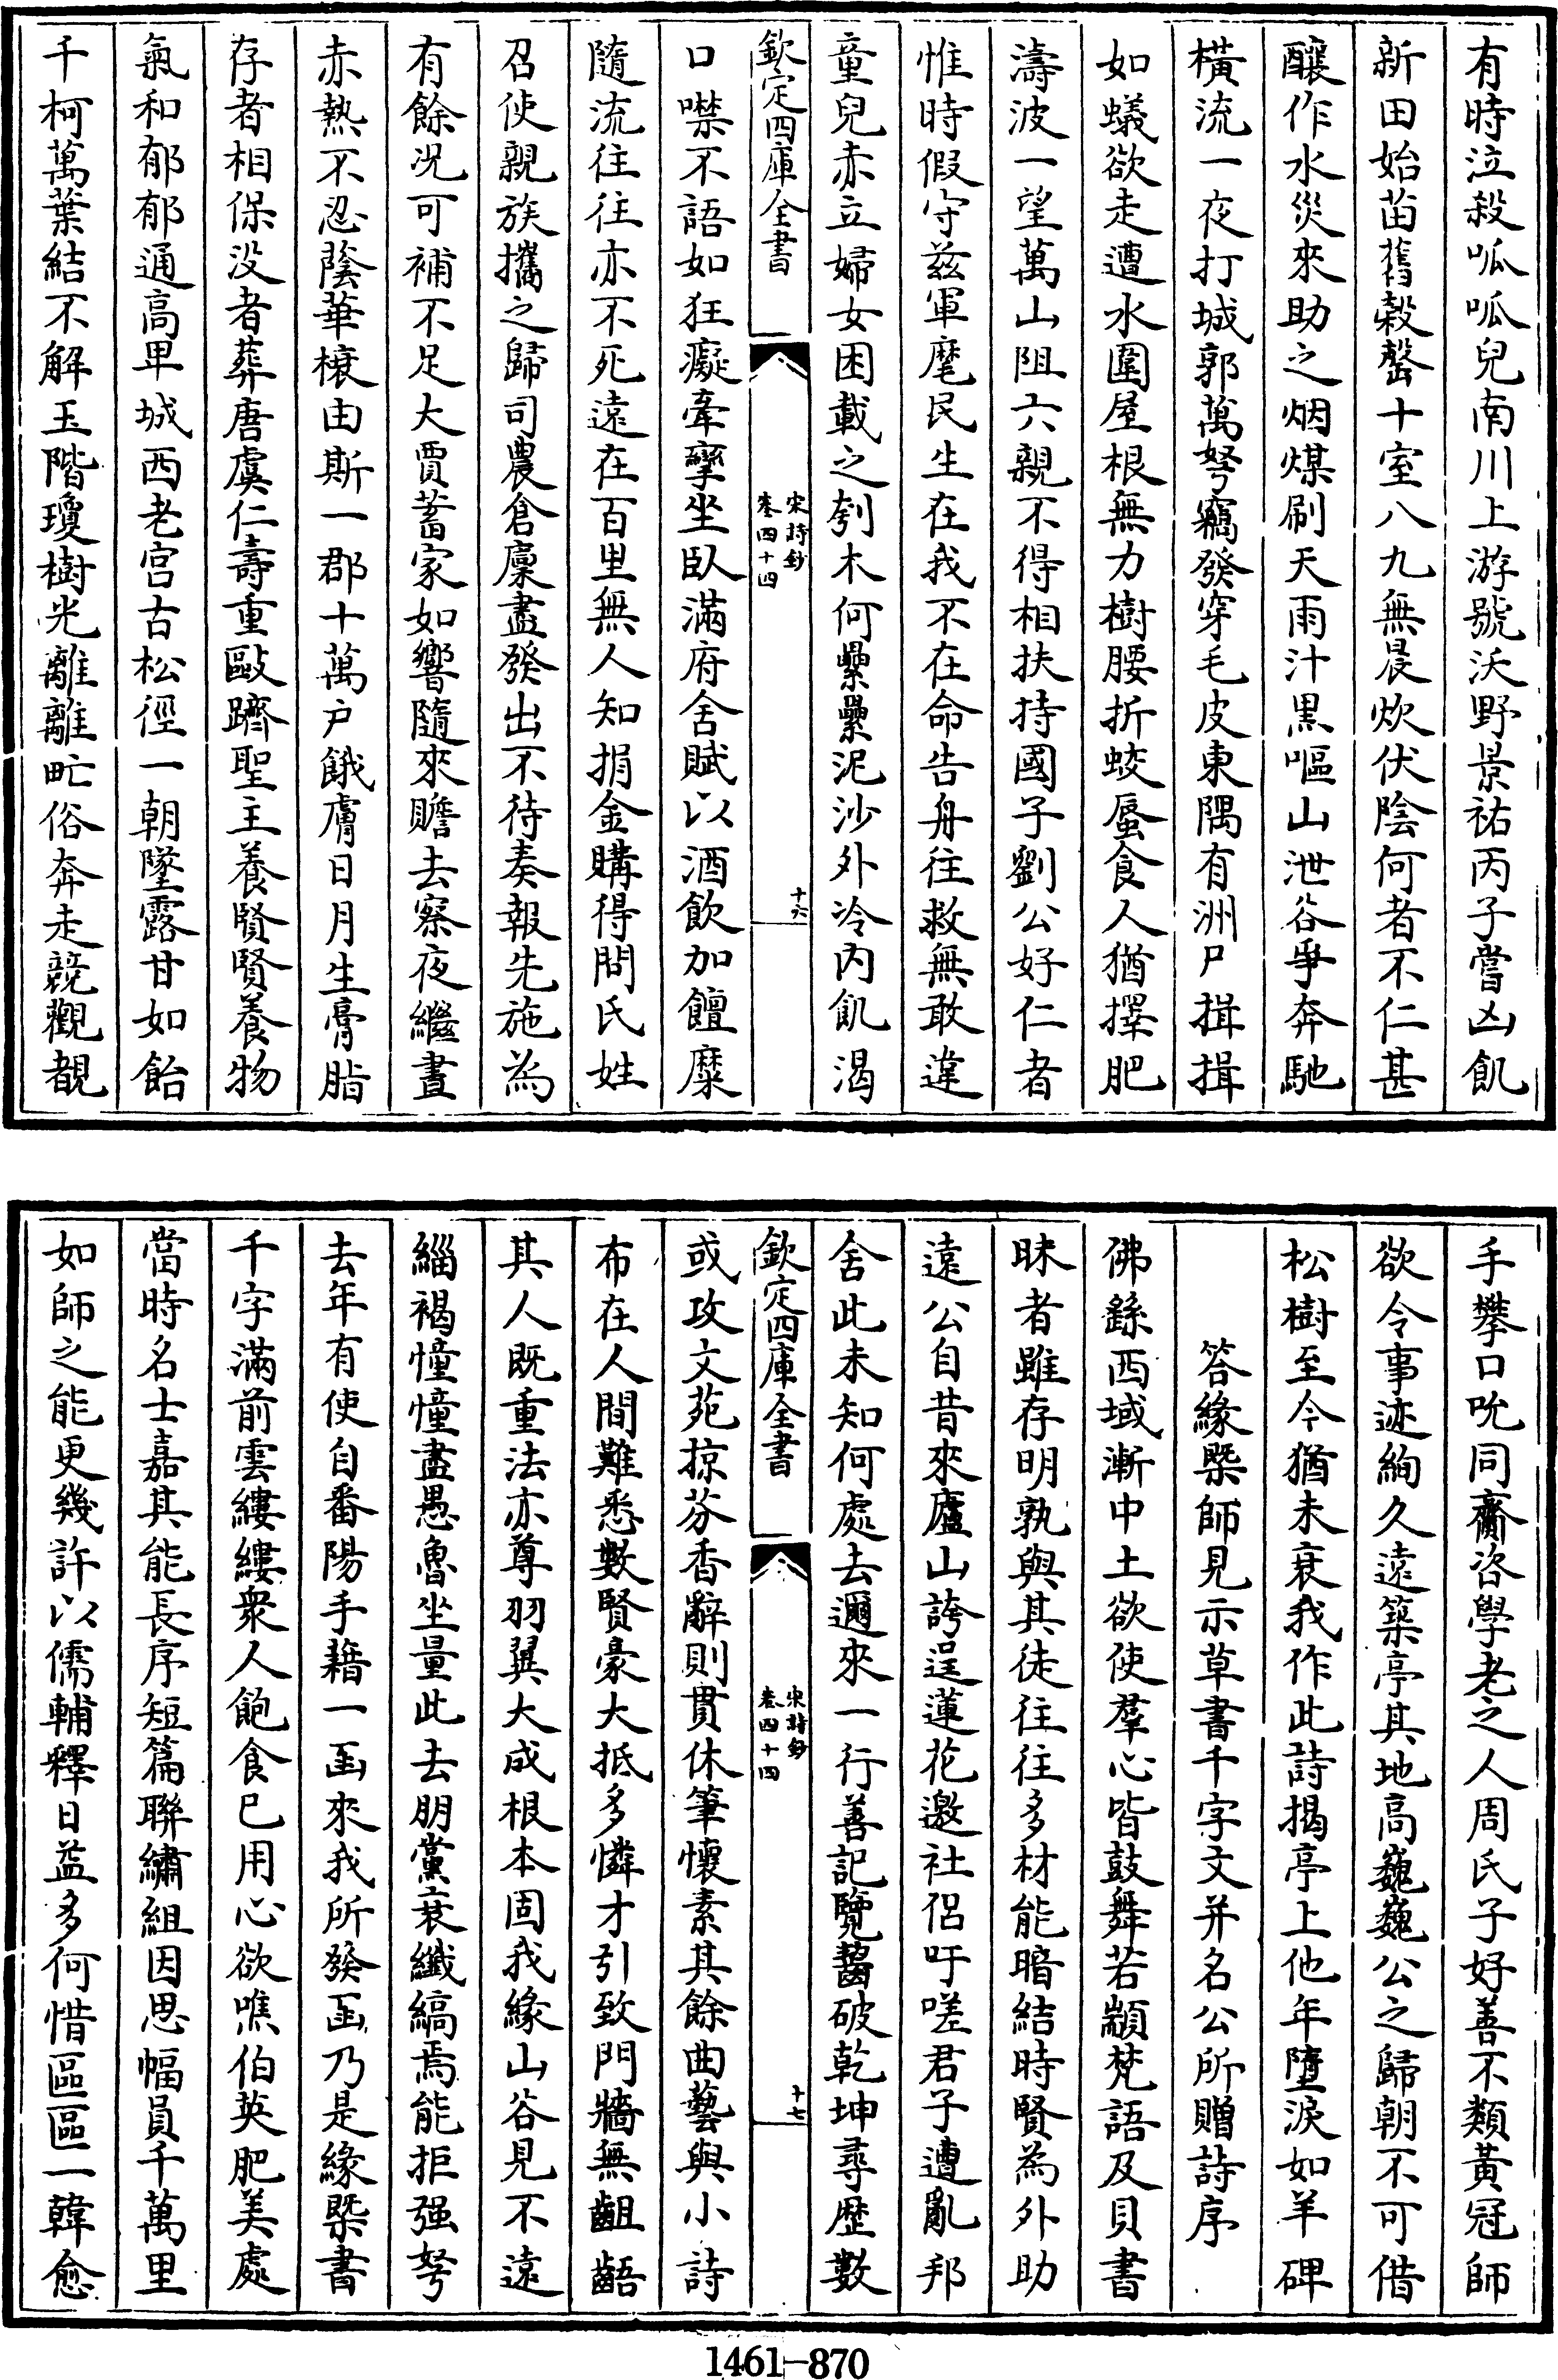 有時泣殺呱呱兒南川上游號沃野景祐丙子嘗凶飢
新田始苗舊穀罄十室八九無晨炊伏陰何者不仁甚
釀作水災來助之烟煤刷天雨汁黑嘔山泄谷爭奔馳
橫流一夜打城郭萬弩竊發穿毛皮東隅有洲尸揖揖
如蟻欲走遭水圍屋根無力樹腰折蛟蜃食人猶擇肥
濤波一望萬山阻六親不得相扶持國子劉公好仁者
惟時假守兹軍麾民生在我不在命告舟往救無敢違
童兒赤立婦女困載之刳木何纍纍泥沙外冷内飢渴
欽定四庫全書
宋詩鈔
卷四十四
十六
口噤不語如狂癡牽攣坐臥滿府舍賦以酒飲加饘糜
隨流往往亦不死遠在百里無人知捐金購得問氏姓
召使親族攜之歸司農倉廩盡發出不待奏報先施為
有餘况可補不足大賈蓄家如響隨來贍去察夜繼晝
赤熱不忍陰華榱由斯一郡十萬户餓膚日月生膏脂
存者相保没者葬唐虞仁壽重毆躋聖主養賢賢養物
氣和郁郁通高卑城西老宮古松徑一朝墜露甘如飴
千柯萬葉結不解玉階瓊樹光離離甿俗奔走競觀覩
手攀口吮同齋咨學老之人周氏子好善不類黃冠師
欲令事迹絢久遠築亭其地高巍巍公之歸朝不可借
松樹至今猶未衰我作此詩揭亭上他年墮淚如羊碑
答緣槩師見示草書千字文并名公所贈詩序
佛繇西域漸中土欲使羣心皆鼓舞若顓梵語及貝書
昧者雖存明孰與其徒往往多材能暗結時賢為外助
遠公自昔來廬山誇逞蓮花邀社侶吁嗟君子遭亂邦
舍此未知何處去邇來一行善記覽齧破乾坤尋歷數
欽定四庫全書
宋詩鈔
卷四十四
十七
或攻文苑掠芬香辭則貫休筆懷素其餘曲藝與小詩
布在人間難悉數賢豪大抵多憐才引致門牆無齟齬
其人既重法亦尊羽翼大成根本固我緣山谷見不遠
緇褐憧憧盡愚魯坐量此去朋黨衰纖縞焉能拒强弩
去年有使自番陽手藉一函來我所發函乃是緣槩書
千字滿前雲縷縷衆人飽食已用心欲噍伯英肥美處
當時名士嘉其能長序短篇聯繡組因思幅員千萬里
如師之能更幾許以儒輔釋日益多何惜區區一韓愈
1461-870